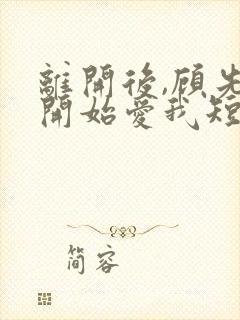 離開後,顧先
開始愛我短
简容